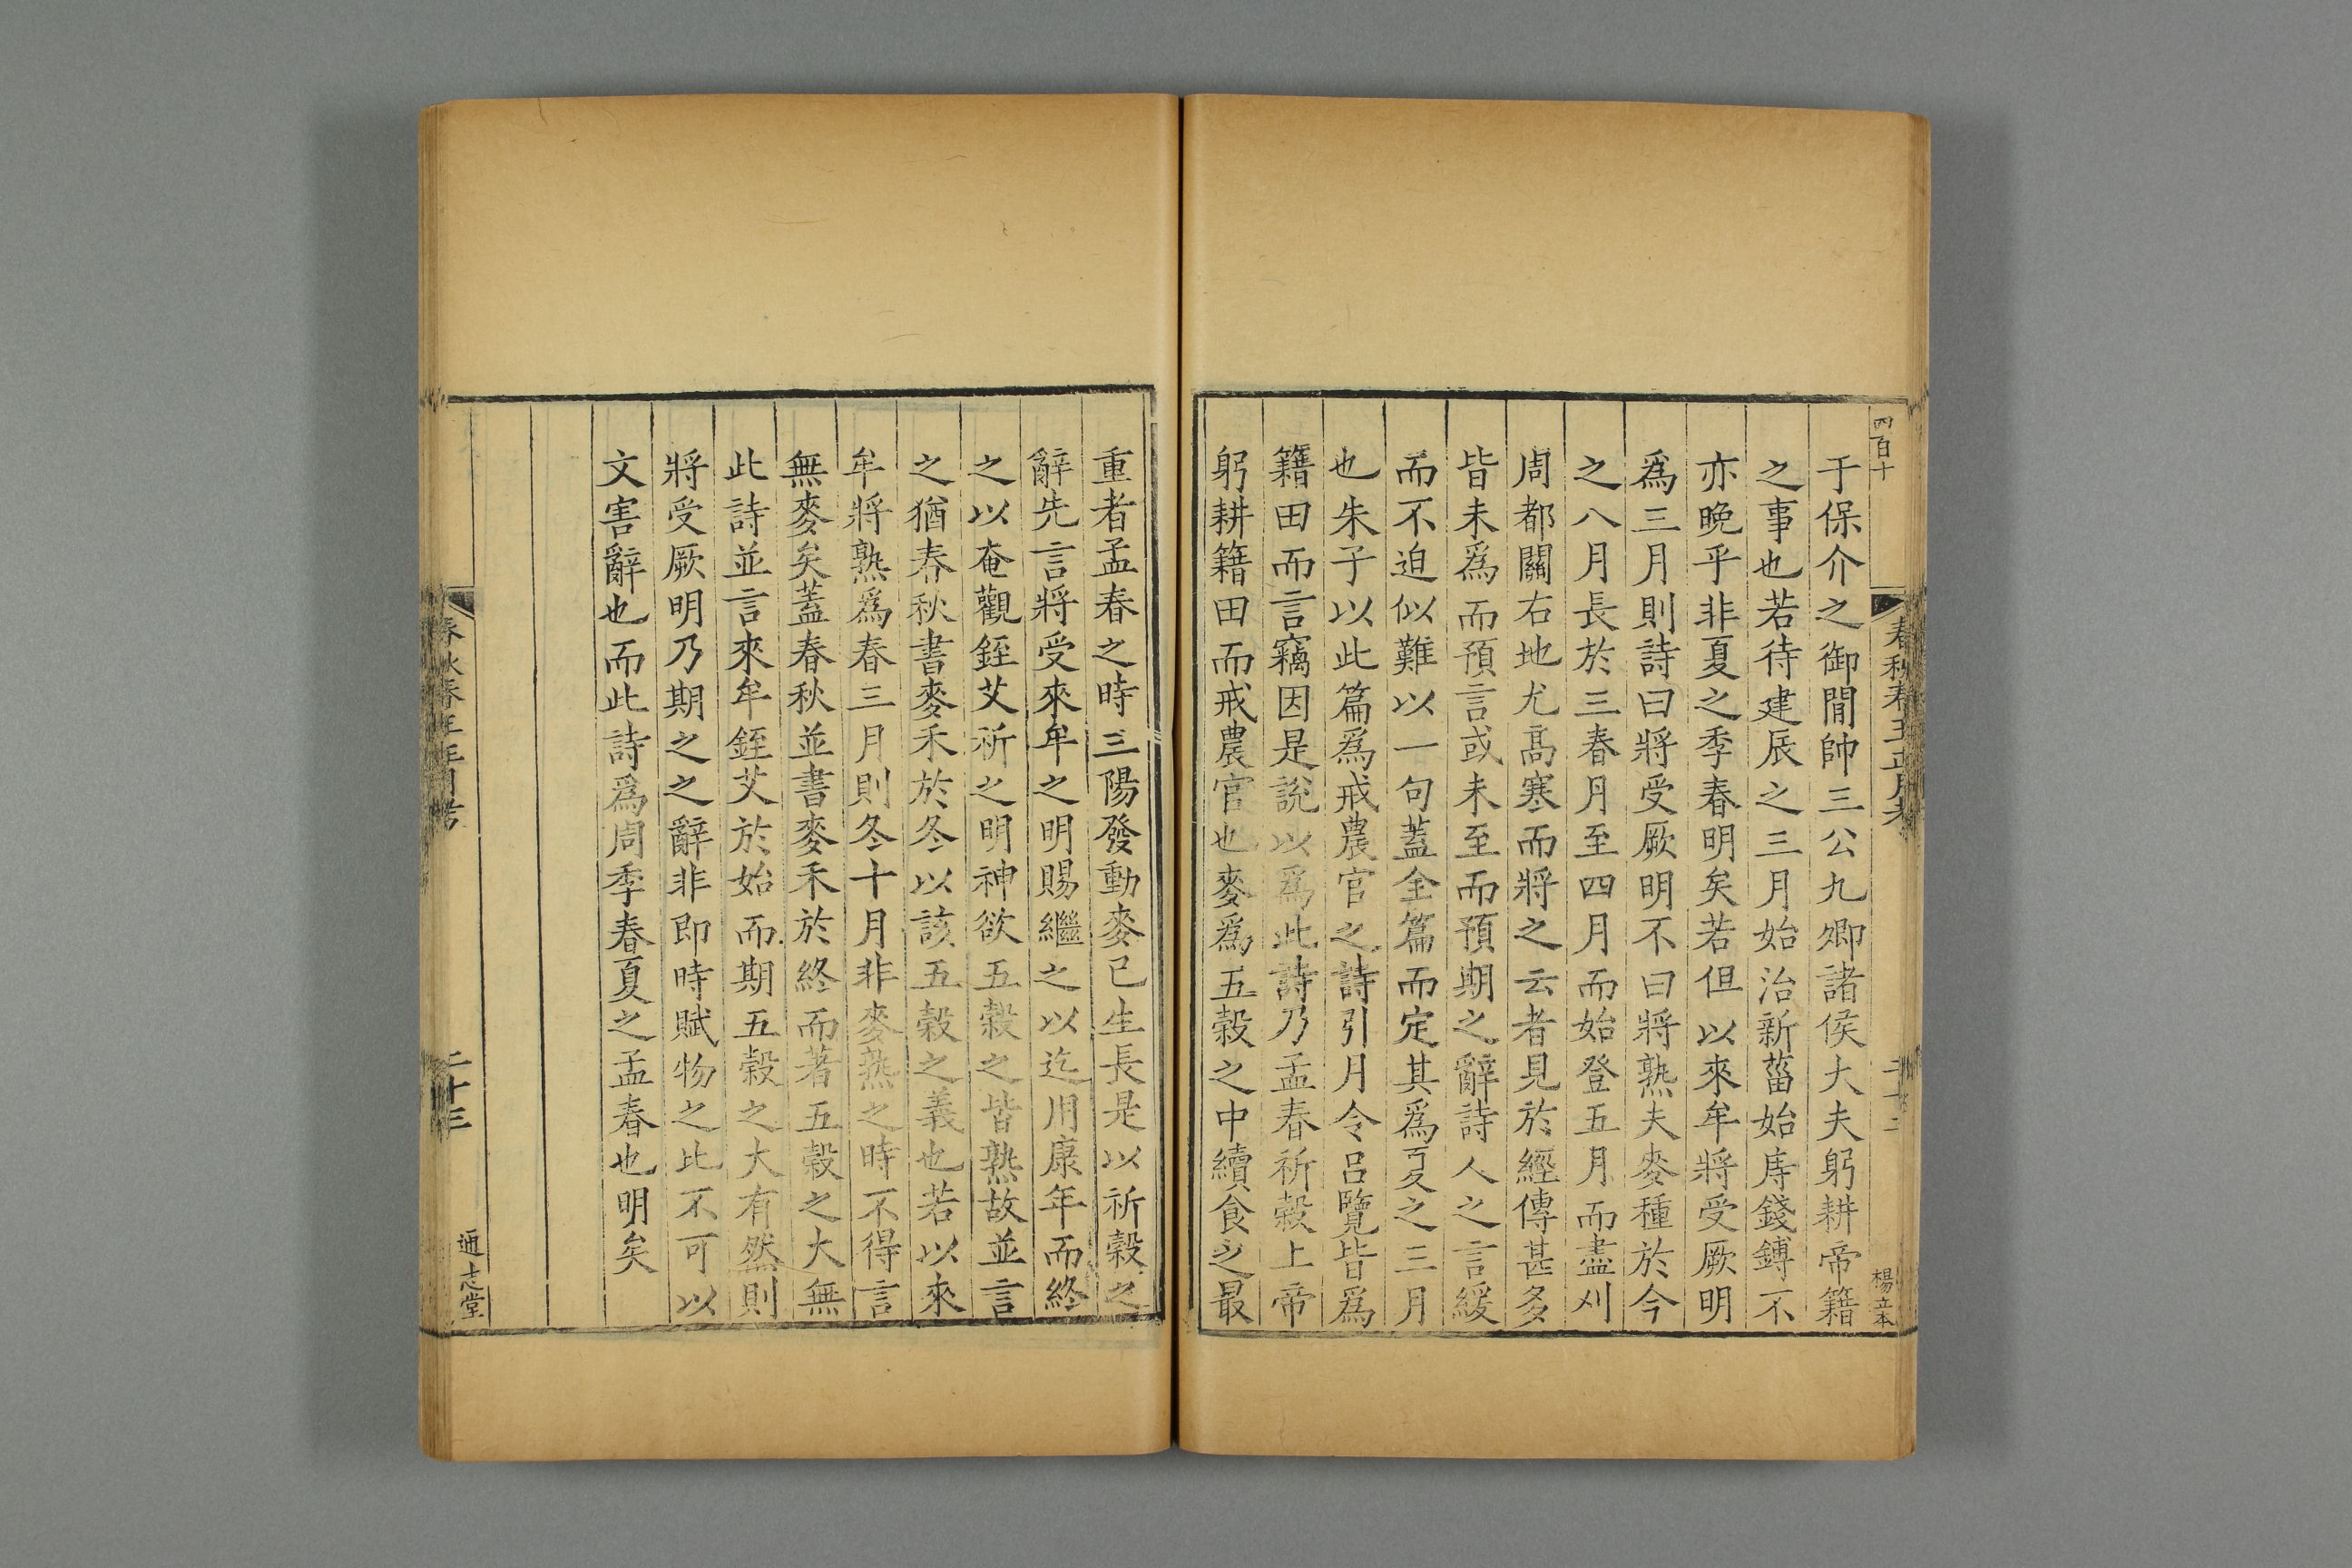 四百十
春秋春王正月考
楊立本
于保介之御間帥三公九卿諸侯大夫躬耕帝籍
之事也若待建辰之三月始治新菑始庤錢鎛不
亦晚乎非夏之季春明矣若但以來牟將受厥明
爲三月則詩曰將受厥明不曰將熟夫麥種於今
之八月長於三春月至四月而始登五月而盡刈
周都關右地尤高寒而將之云者見於經傳甚多
皆未爲而預言或未至而預期之辭詩人之言緩
而不迫似難以一句蓋全篇而定其爲夏之三月
也朱子以此篇爲戒農官之詩引月令呂覽皆爲
籍田而言竊因是說以爲此詩乃孟春祈穀上帝
躬耕籍田而戒農官也麥爲五穀之中續食之最
重者孟春之時三陽發動麥已生長是以祈穀之
辭先言將受來牟之明賜繼之以迄用康年而終
之以奄觀銍艾祈之明神欲五穀之皆熟故並言
之猶春秋書麥禾於冬以該五穀之義也若以來
牟將熟爲春三月則冬十月非麥熟之時不得言
無麥矣蓋春秋並書麥禾於終而著五穀之大無
此詩並言來牟銍艾於始而期五穀之大有然則
將受厥明乃期之之辭非即時賦物之此不可以
文害辭也而此詩爲周季春夏之孟春也明矣
春秋春王正月考
二十三
通志堂